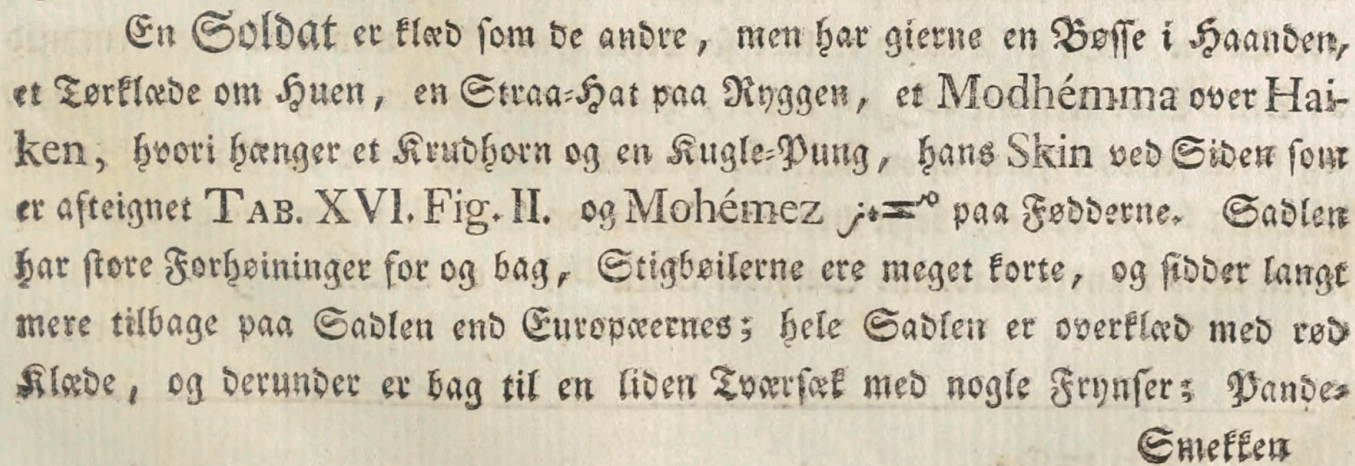 En Soldat er klæd som de andre, men har gierne en Bøsse i Haanden,
et Tørklæde om Huen, en Straa-Hat paa Ryggen, et Modhémma over Hai-
ken, hvori hænger et Krudhorn og en Kugle-Pung, hans Skin ved Siden som
er afteignet TAB. XVI. Fig. II. og Mohémez paa Fødderne. Sadlen
har store Forhøininger for og bag, Stigbøilerne ere meget korte, og sidder langt
mere tilbage paa Sadlen end Europæernes; hele Sadlen er overklæd med rød
Klæde, og derunder er bag til en liden Tværsæk med nogle Frynser; Pande-
Smekken